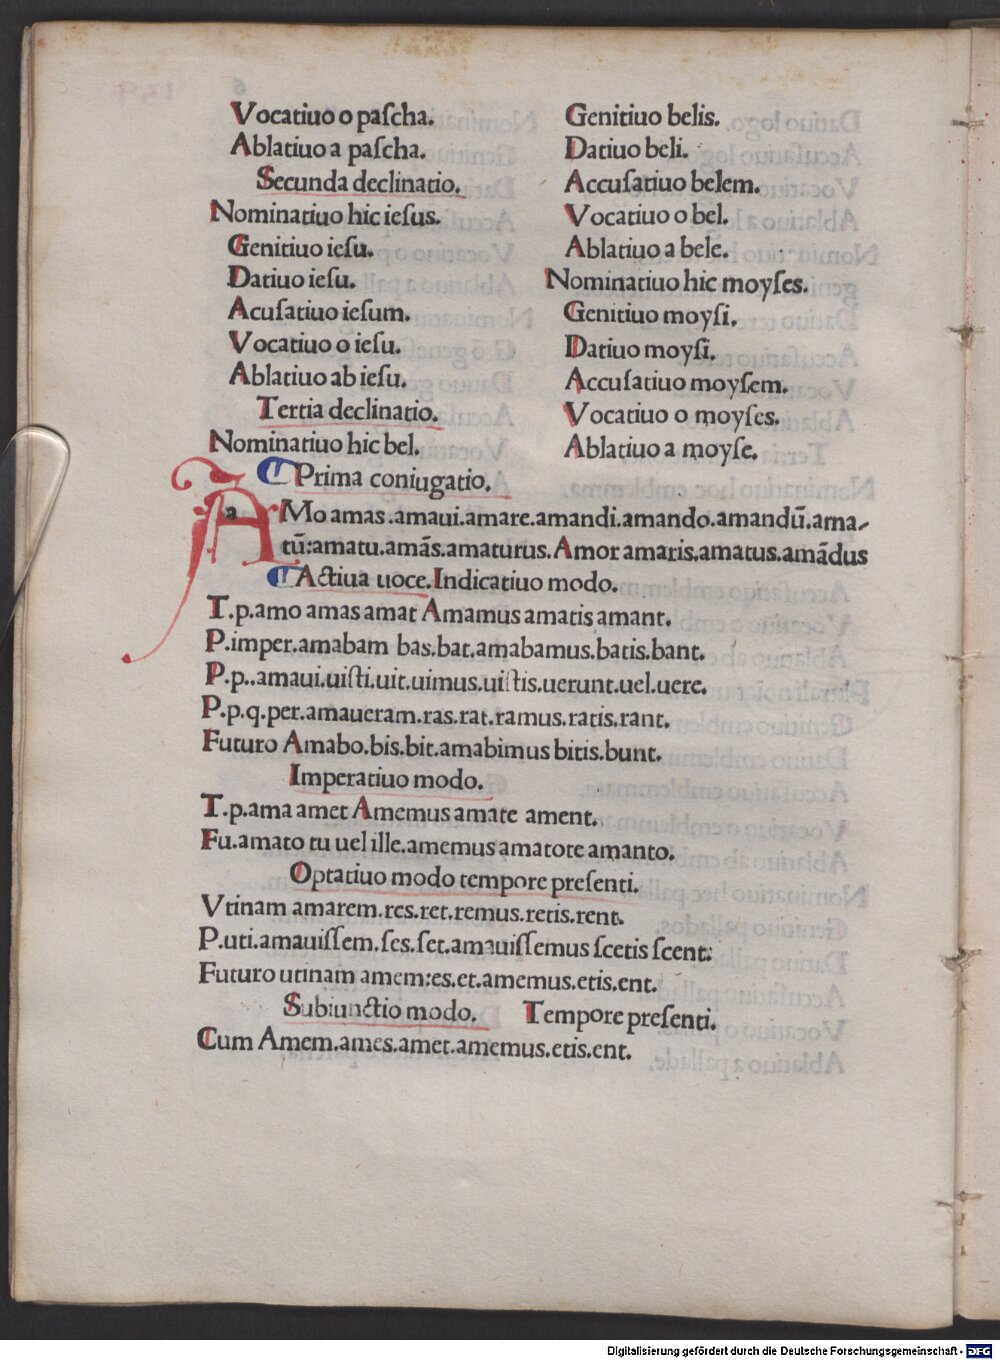 Vocatiuo o paſcha.
Ablatiuo a paſcha.
Secunda declinatio.
Nominatiuo hic ieſus.
Genitiuo ieſu.
Datiuo ieſu.
Acuſatiuo ieſum.
Vocatiuo o ieſu.
Ablatiuo ab ieſu.
Tertia declinatio.
Nominatiuo hic bel.
Genitiuo belis.
Datiuo beli.
Accuſatiuo belem.
Vocatiuo o bel.
Ablatiuo a bele.
Nominatiuo hic moyſes.
Genitiuo moyſi.
Datiuo moyſi.
Accuſatiuo moyſem.
Vocatiuo o moyſes.
Ablatiuo a moyſe.
Prima coniugatio.
AMo amas .amaui.amare.amandi.amando.amandū.ama-
tū:amatu.amãs.amaturus.Amor amaris.amatus.amãdus
Actiua uoce.Indicatiuo modo.
T.p.amo amas amat Amamus amatis amant.
P.imper.amabam bas.bat.amabamus.batis.bant.
P.p..amaui.uiſti.uit.uimus.uiſtis.uerunt.uel.uere.
P.p.q.per.amaueram.ras.rat.ramus.ratis.rant.
Futuro Amabo.bis.bit.amabimus bitis.bunt.
Imperatiuo modo.
T.p.ama amet Amemus amate ament.
Fu.amato tu uel ille.amemus amatote amanto.
Optatiuo modo tempore preſenti.
Vtinam amarem.res.ret.remus.retis.rent.
P.uti.amauiſſem.ſes.ſet.amauiſſemus ſcetis ſcent:
Futuro utinam amem:es.et.amemus.etis.ent.
Subiunctio modo. Tempore preſenti.
Cum Amem.ames.amet.amemus.etis.ent.
Digitalisierung gefördert durch die Deutsche Forschungsgemeinschaft - DFG